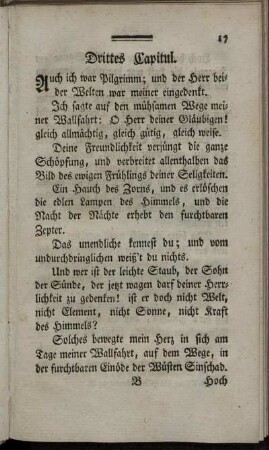 17
Drittes Capitul.
Auch ich war Pilgrimm; und der Herr bei-
der Welten war meiner eingedenkt.
Ich sagte auf den mühsamen Wege mei-
ner Wallfahrt: O Herr deiner Gläubigen!
gleich allmächtig, gleich gütig, gleich weise.
Deine Freundlichkeit verjüngt die ganze
Schöpfung, und verbreitet allenthalben das
Bild des ewigen Frühlings deiner Seligkeiten.
Ein Hauch des Zorns, und es erlöschen
die edlen Lampen des Himmels, und
die Nacht der Nächte erhebt den furchtbaren
Zepter.
Das unendliche kennest du; und vom
undurchdringlichen weiß't du nichts.
Und wer ist der leichte Staub, der Sohn
der Sünde, der jetzt wagen darf deiner Herr-
lichkeit zu gedenken! ist er doch nicht Welt,
nicht Element, nicht Sonne, nicht Kraft
des Himmels?
Solches bewegte mein Herz in sich am
Tage meiner Wallfahrt, auf dem Wege, in
der furchtbaren Einöde der Wüsten Sinschad.
B Hoch